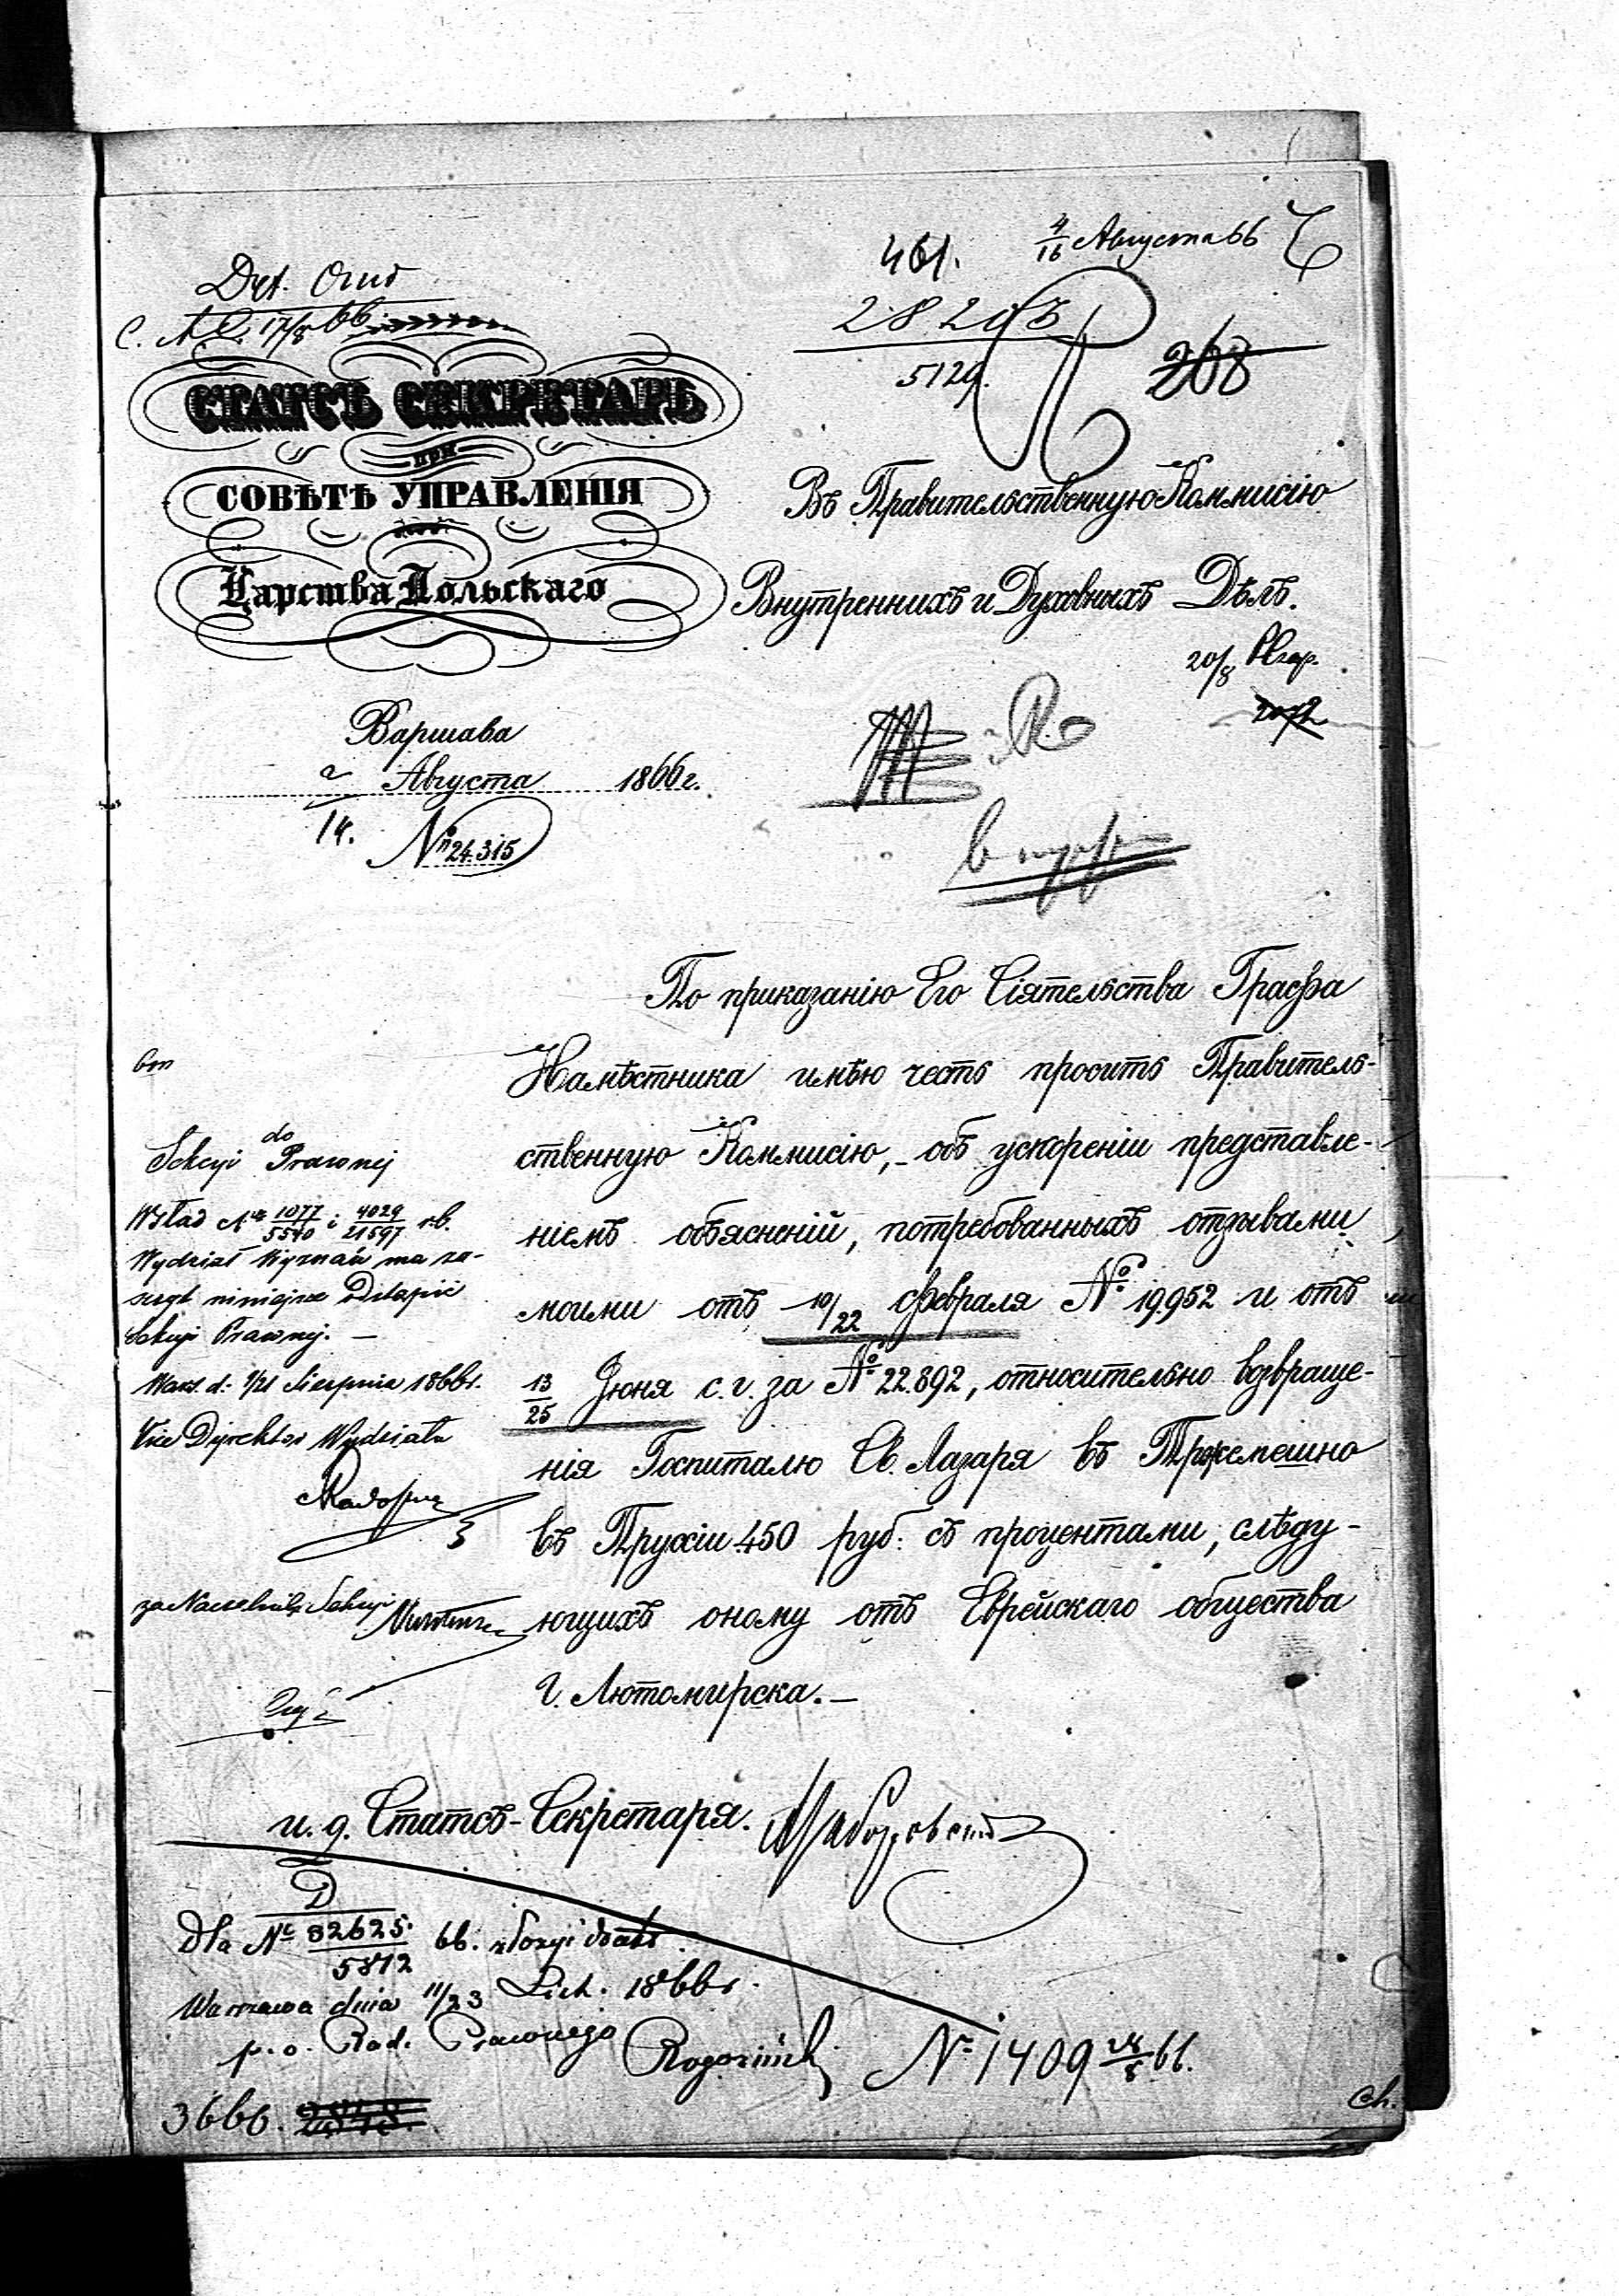 461.
4/16 Августа 66
Dyr. Ornd
17/8 66.
5129.
268
СТАТСЪ СЕКРЕТАРЬ
при
СОВѢТѢ УПРАВЛЕНІЯ
Царства Польскаго
Въ Правительственную Коммисію
Внутреннихъ и Духовныхъ Дѣлъ.
20/8
Варшава
2/14. Августа 1866 г.
№ 24.315
По приказанію Его Сіятельства Графа
Намѣстника имѣю честь просить Правитель-
ственную Коммисію, объ ускореніи представле-
ніемъ объясненій, потребованныхъ отзывами
моими отъ 10/22 Февраля № 19.952 и отъ
13/25 Іюня с. г. за № 22.892, относительно возвраще-
нія Госпиталю Св. Лазаря въ Тржемешно
въ Пруссіи 450 руб: съ процентами, слѣду-
ющихъ оному отъ Еврейскаго общества
г. Лютомирска.
do
Sekcyi Prawnej
W ślad Nr 1077/5540 i 4029/21597 r.b.
Wydział Wyznań ma za-
szczyt niniejsze odstąpić
Sekcyi Prawnej.
Warsz. d. 9/21 Sierpnia 1866 r.
Vice Dyrektor Wydziału
za Naczelnika Sekcyi
и. д. Статсъ-Секретаря.
D
Dla № 32625/5812 66.
Warszawa dnia 11/23 List. 1866 r.
p. o. Rad. Prawnego
№ 1409 24/8 66.
3666.
Ch.